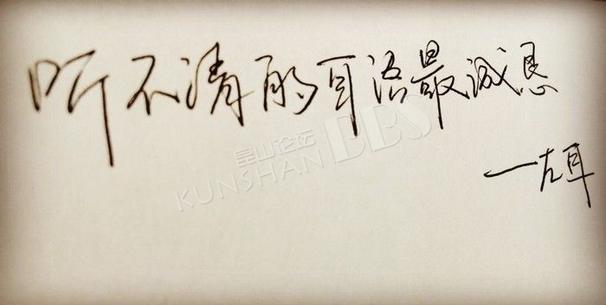 听不清的耳语最诚恳
一左耳
昆山论坛
KUNSHAN BBS